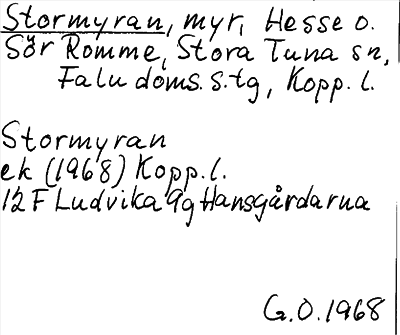 Stormyran, myr, Hesse o.
Sör Romme, Stora Tuna sn,
Falu doms.s.tg, Kopp.l.
Stormyran
ek (1968) Kopp.l.
12 F Ludvika 9g Hansgårdarna
G.O.1968